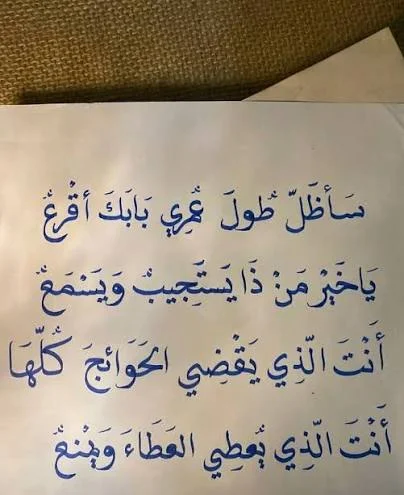 سَأَظَلّ طُولَ عُمرِي بَابَكَ أقْرعُ
يَاخَيْر مَنْ ذَا يَستَجِيبُ وَيَسْمَعُ
أَنْتَ الّذِي يَقْضِي الحَوَائجَ كُلّهَا
أَنْتَ الّذِي يُعطِي العَطَاءَ وَيمْنعُ